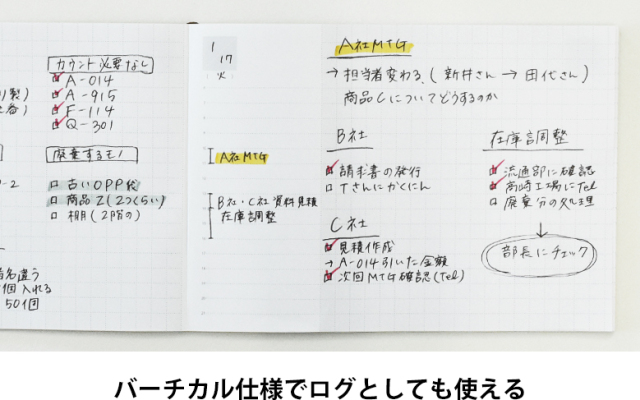 カウント必要なし
A-014
A-915
F-114
Q-301
廃棄するモノ
古いOPP袋
商品Z(2つくらい)
棚(2階の)
名違う
個入れる
50個
1
17
火
A社MTG
B社・C社資料見積
在庫調整
A社MTG
→担当者変わる、(新井さん→田代さん)
商品Cについてどうするのか
B社
請求書の発行
Tさんにかくにん
C社
見積作成
→A-014引いた金額
次回MTG確認(Tel)
在庫調整
流通部に確認
高崎工場にTel
廃棄分の処理
部長にチェック
バーチカル仕様でログとしても使える